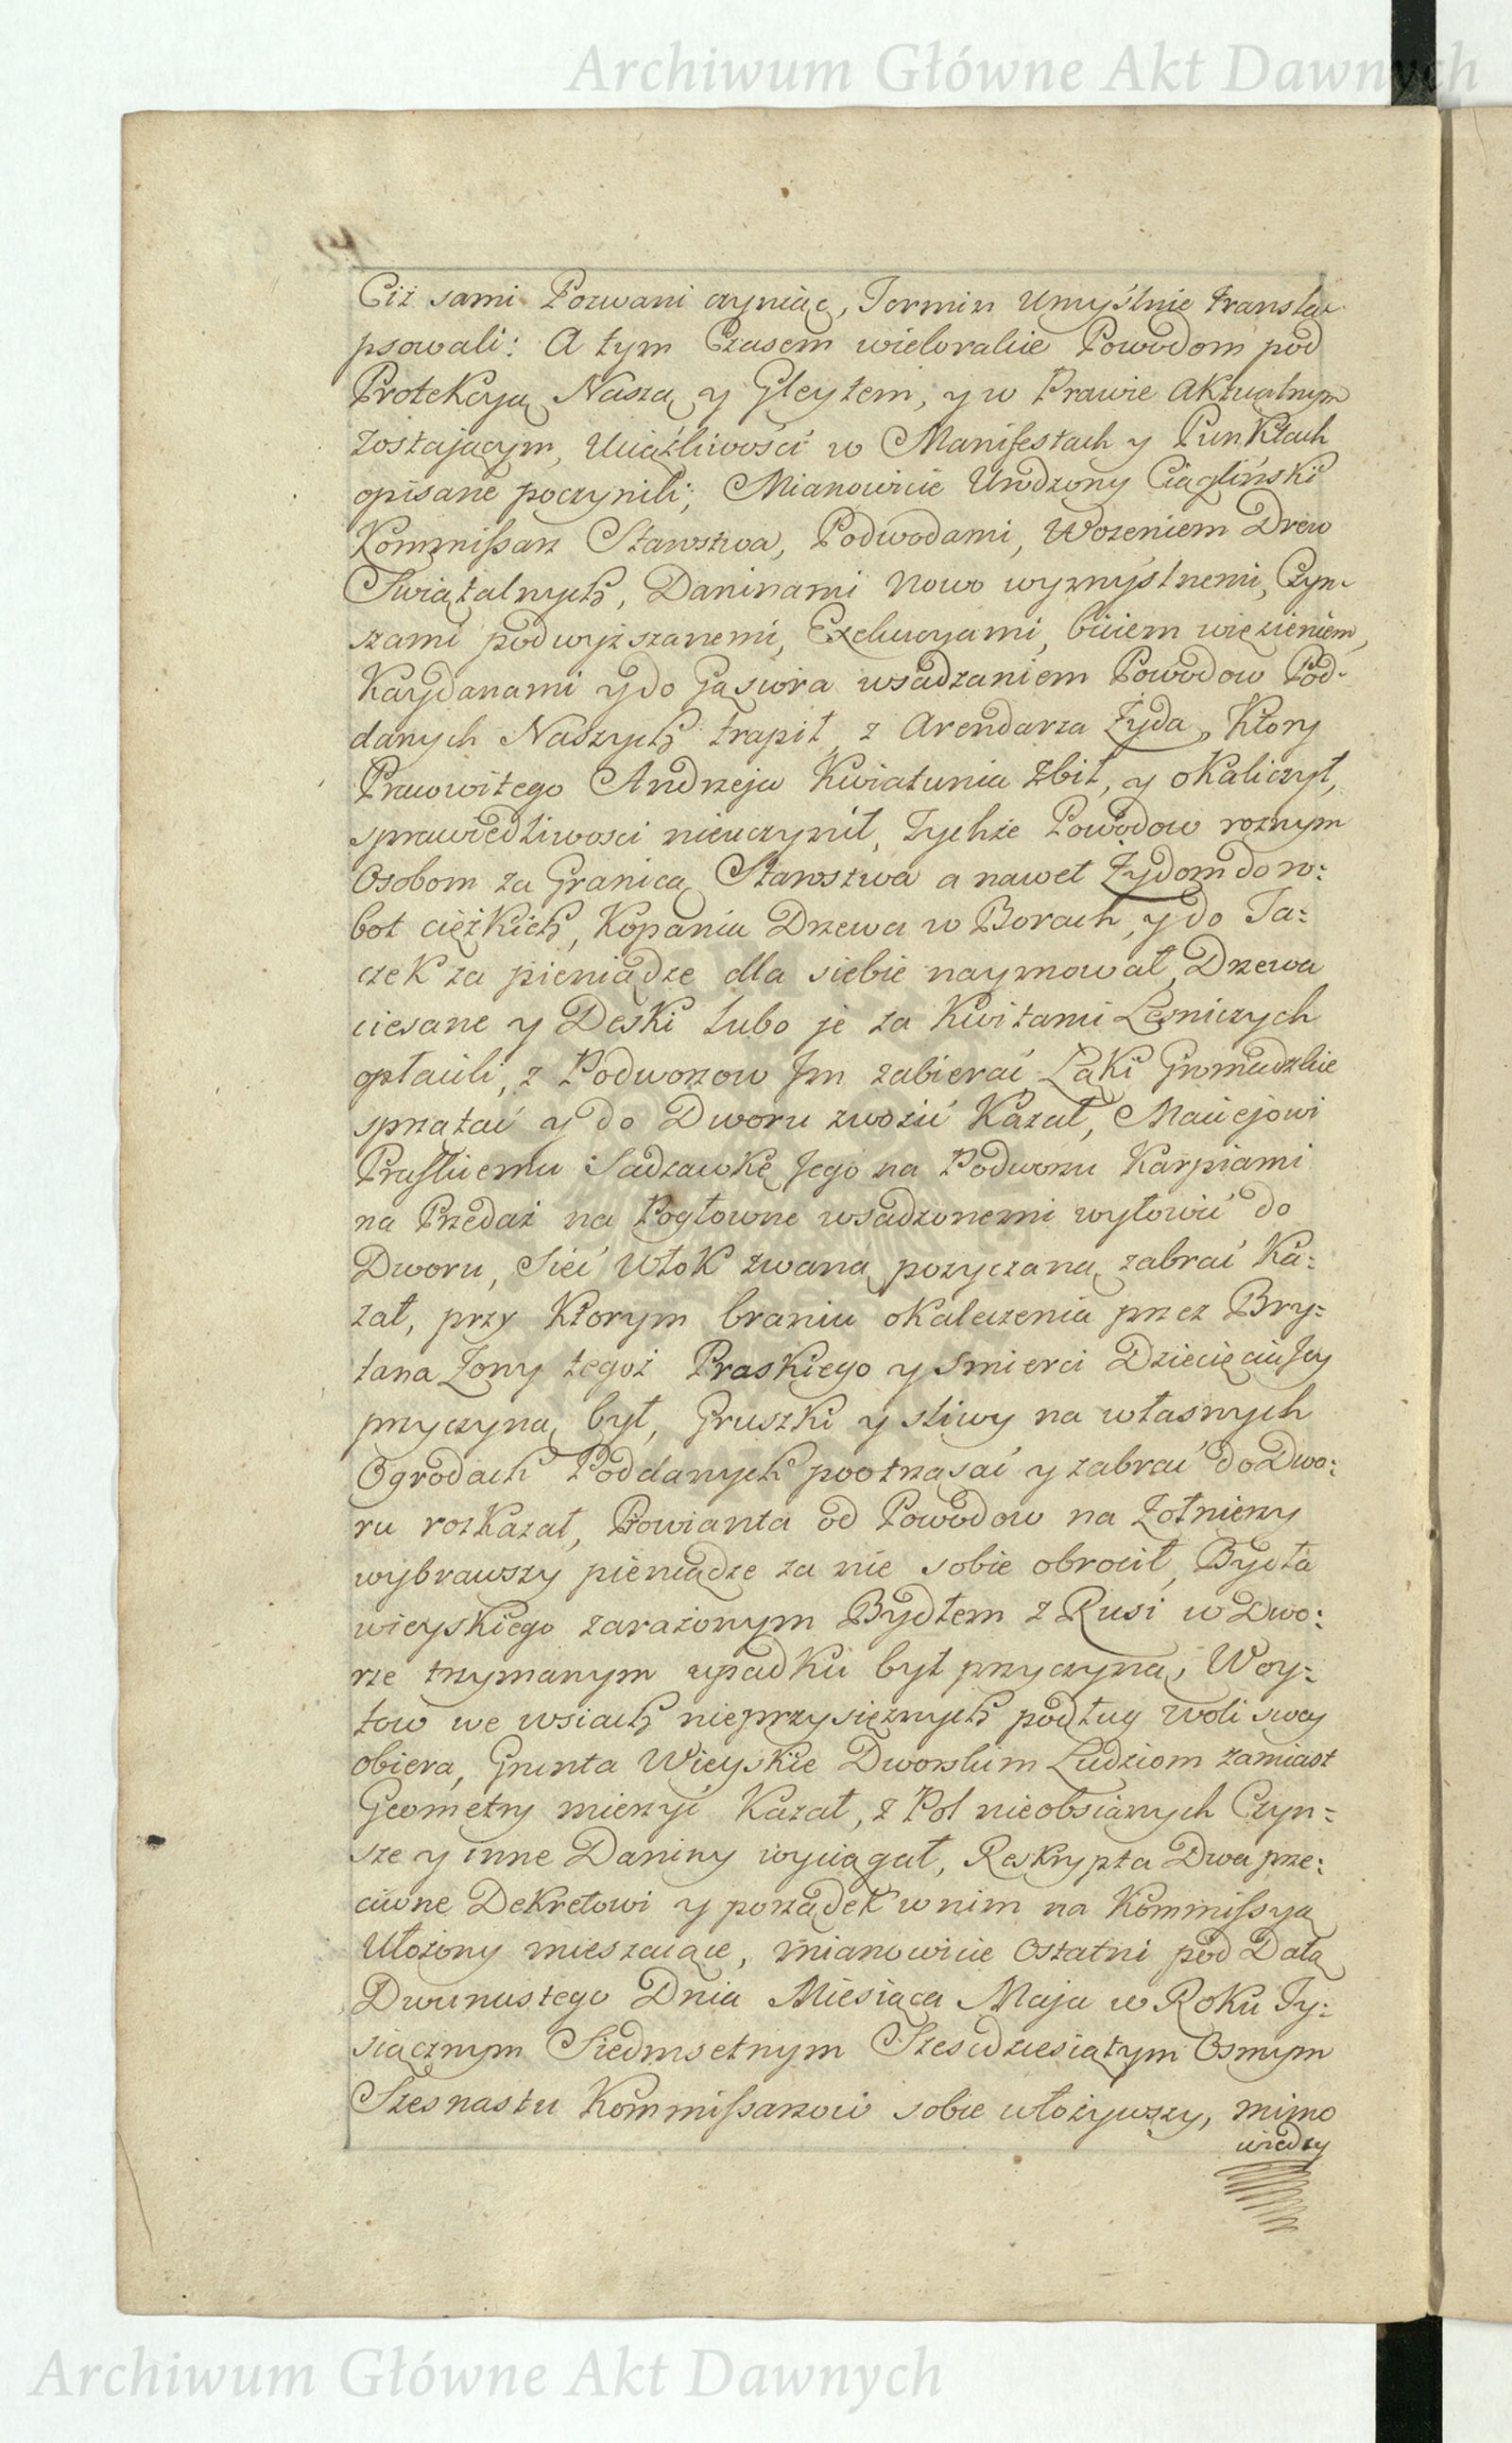 Archiwum Główne Akt Dawnych
Ciż sami Pozwani czyniąc, Termin Umyślnie translap
psowali: A tym Czasem wielorakie Powodom pod
Protekcyą Naszą y Gleytem, y w Prawie Aktualnym
zostającym, Uciążliwości w Manifestach y Punktach
opisane poczynili; Mianowicie Urodzony Ciągliński
Kommissarz Starostwa, Podwodami, Wozeniem Drew
Swiątalnych, Daninami nowo wymyslnemi, Czyn-
szami podwyższanemi, Exekucyami, biciem więzieniem,
Kaydanami y do Gąsiora wsadzaniem Powodow Pod-
danych Naszych trapił, z Arendarza Żyda, Ktory
Pracowitego Andrzeja Kwiatunia Zbił, y okaliczył,
sprawiedliwosci nieuczynił, Tychże Powodow roznym
Osobom za Granicą Starostwa a nawet Żydom do ro:
bot ciężkich, Kopania Drzewa w Borach, y do Ta:
czek za pieniądze dla siebie naymował, Drzewa
ciesane y Deski lubo je za Kwitami Lesniczych
opłacili, z Podworzow Im zabierać, Łąki Gromadzkie
sprzątać y do Dworu zwozić Kazał, Maciejowi
Praskiemu Sadzawkę Jego na Podworzu Karpiami
na Przedaż na Pogłowne wsadzonemi wyłowić do
Dworu, Sieć Włok zwaną pozyczaną zabrać Ka:
zał, przy Ktorym braniu okaleczenia przez Bry:
tana Żony tegoż Praskiego y Smierci Dziecięciu Jey
przyczyną był, Gruszki y sliwy na własnych
Ogrodach Poddanych pootrząsać y zabrać do Dwo:
ru rozkazał, Prowianta od Powodow na Żołnierzy
wybrawszy pieniądze za nie sobie obrocił, Bydła
wieyskiego zarażonym Bydłem z Rusi w Dwo:
rze trzymanym upadku był przyczyną, Woy:
tow we wsiach nieprzysięznych podług Woli swey
obiera, Grunta Wieyskie Dworskim Ludziom zamiast
Geometry mierzyć Kazał, z Pol nieobsianych Czyn:
sze y inne Daniny wyciągał, Reskrypta Dwa prze:
ciwne Dekretowi y porządek w nim na Kommissyą
Ułożony mieszaiące, mianowicie Ostatni pod Datą
Dwunastego Dnia Miesiąca Maja w Roku Ty:
siącznym Siedmsetnym Szesćdziesiątym Osmym
Szesnastu Kommissarzow sobie ułożywszy, mimo
wiedzy
Archiwum Główne Akt Dawnych